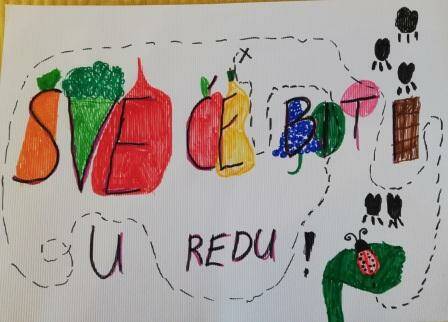 SVE ĆE BITI
U REDU!